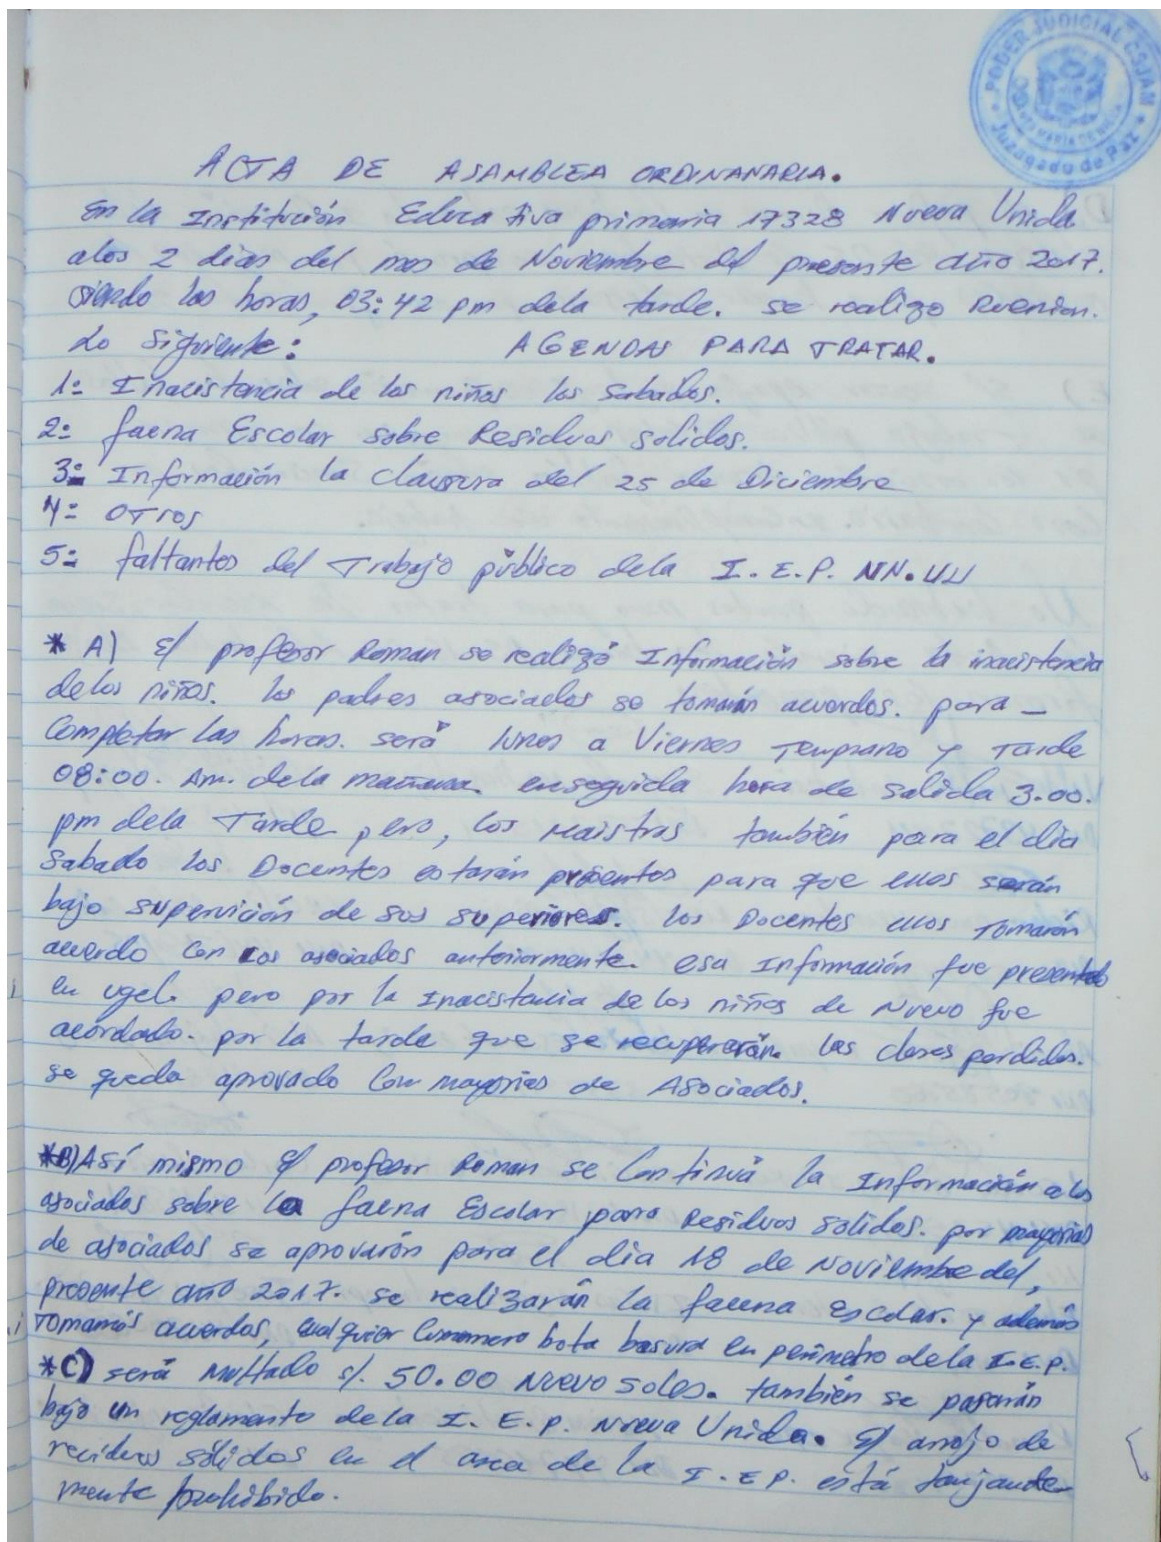 PODER JUDICIAL CSJAM
Juzgado de Paz
ACTA DE ASAMBLEA ORDINANARIA.
En la Institución Educativa primaria 17328 Nueva Unida
alos 2 dias del mes de Noviembre del presente año 2017.
siendo las horas, 03:42 pm dela tarde. se realizo Reenion.
Lo siguiente: AGENDAS PARA TRATAR.
1º Inacistencia de los niños los sabados.
2º faena Escolar sobre Residuos solidos.
3º Información la clausura del 25 de Diciembre
4º OTros
5º faltantes del Trabajo público dela I.E.P. NN.UU
* A) El profesor Roman se realizó Información sobre la inacistencia
delos niños. los padres asociados se tomarán acuerdos. para -
Completar las horas. será lunes a Viernes Temprano y Tarde
08:00. Am. dela mañana. enseguida hora de salida 3.00.
pm dela Tarde pero, los Maistros también para el dia
sabado los Docentes estarán presentes para que ellos serán
bajo supervición de sus superiores. los Docentes ellos Tomarón
acuerdo con los asociados anteriormente. esa Información fue presentado
en ugel. pero por la Inacistancia de los niños de Nuevo fue
acordado. por la tarde que se recuperarán. las clases perdidas.
se queda aprovado Con mayorias de Asociados.
*B) Así mismo El profesor Roman se Continuá la Información a los
asociados sobre la faena Escolar para Residuos solidos. por mayorias
de asociados se aprovarón para el dia 18 de Noviembre del,
presente año 2017. se realizarán la faena escolar. y además
Tomamós acuerdos, cualquier Comonero bota basura en perimetro dela I.E.P.
*C) será Multado s/. 50.00 Nuevo soles. también se pasarán
bajo un reglamento de la I.E.P. Nueva Unida. El arrojo de
reciduos sólidos en el area de la I.EP. está tanjante
mente prohibido.